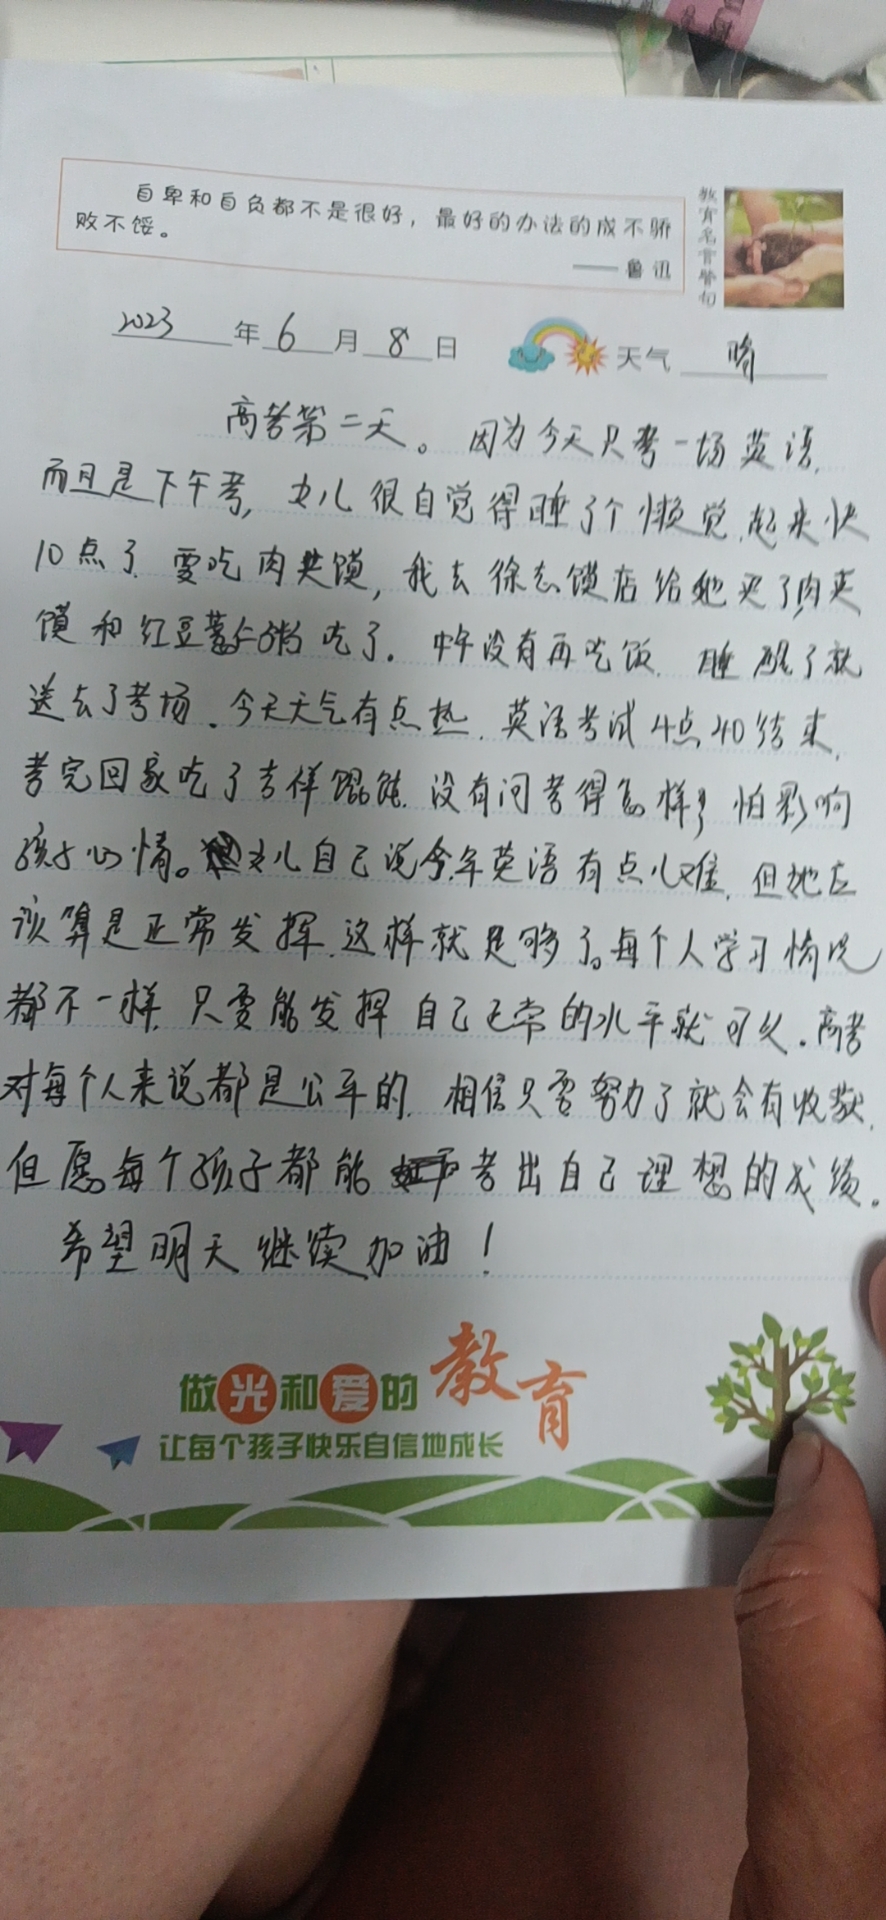 自卑和自负都不是很好，最好的办法的成不骄
败不馁。
—— 鲁迅
教育名言警句
2023年6月8日 天气 晴
高考第二天。因为今天只考一场英语，
而且是下午考，女儿很自觉得睡了个懒觉，起来快
10点了，要吃肉夹馍，我去徐志馍店给她买了肉夹
馍和红豆薏仁粥吃了。中午没有再吃饭，睡醒了就
送去了考场。今天天气有点热，英语考试4点40结束，
考完回家吃了吉祥馄饨，没有问考得怎样，怕影响
孩子心情。女儿自己说今年英语有点儿难，但她应
该算是正常发挥，这样就足够了。每个人学习情况
都不一样，只要能发挥自己正常的水平就可以。高考
对每个人来说都是公平的，相信只要努力了就会有收获，
但愿每个孩子都能考出自己理想的成绩。
希望明天继续加油！
做光和爱的教育
让每个孩子快乐自信地成长